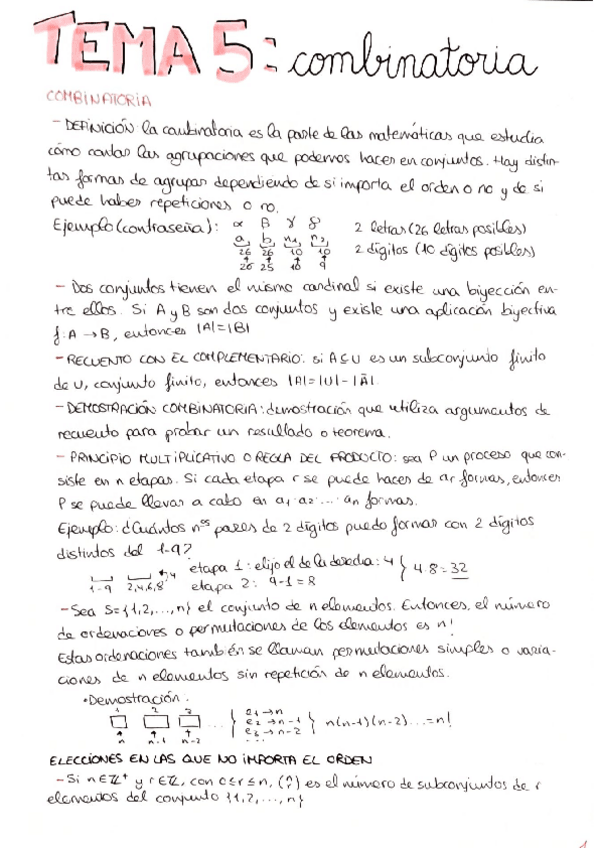 TEMA 5: combinatoria
COMBINATORIA
- DEFINICIÓN: la combinatoria es la parte de las matemáticas que estudia
cómo contar las agrupaciones que podemos hacer en conjuntos. Hay distin-
tas formas de agrupar dependiendo de si importa el orden o no y de si
puede haber repeticiones o no.
Ejemplo (contraseña): α β γ δ 2 letras (26 letras posibles)
a, b, n1, n2, 2 dígitos (10 dígitos posibles)
26 26 10 10
26 25 10 9
- Dos conjuntos tienen el mismo cardinal si existe una biyección en-
tre ellos. Si A y B son dos conjuntos y existe una aplicación biyectiva
f: A → B, entonces |A|=|B|
- RECUENTO CON EL COMPLEMENTARIO: si A⊆U es un subconjunto finito
de U, conjunto finito, entonces |A|=|U|-|Ā|.
- DEMOSTRACIÓN COMBINATORIA: demostración que utiliza argumentos de
recuento para probar un resultado o teorema.
- PRINCIPIO MULTIPLICATIVO O REGLA DEL PRODUCTO: sea P un proceso que con-
siste en n etapas. Si cada etapa r se puede hacer de ar formas, entonces
P se puede llevar a cabo en a1·a2·...·an formas.
Ejemplo: ¿Cuántos nos pares de 2 dígitos puedo formar con 2 dígitos
distintos del 1-9?
etapa 1: elijo el de la derecha: 4 } 4·8=32
1-9 2,4,6,8 4 etapa 2: 9-1=8
- Sea S={1,2,...,n} el conjunto de n elementos. Entonces, el número
de ordenaciones o permutaciones de los elementos es n!
Estas ordenaciones también se llaman permutaciones simples o varia-
ciones de n elementos sin repetición de n elementos.
• Demostración:
1 2 3 ... { e1→n
n n-1 n-2 e2→n-1 } n(n-1)(n-2)...=n!
e3→n-2
...
ELECCIONES EN LAS QUE NO IMPORTA EL ORDEN
- Si n∈Z⁺ y r∈Z, con 0≤r≤n, (n r) es el número de subconjuntos de r
elementos del conjunto {1,2,...,n}
1